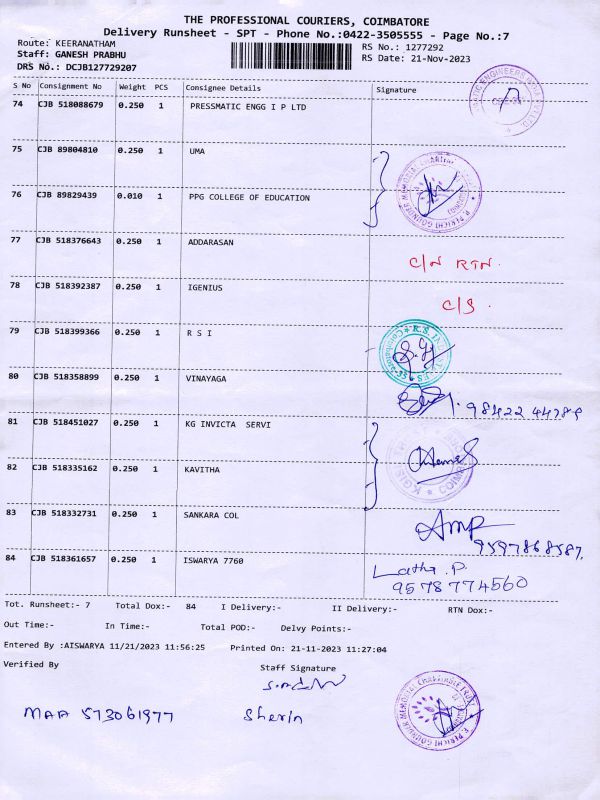 THE PROFESSIONAL COURIERS, COIMBATORE
Delivery Runsheet - SPT - Phone No.:0422-3505555 - Page No.:7
Route: KEERANATHAM
RS No.: 1277292
Staff: GANESH PRABHU
RS Date: 21-Nov-2023
DRS No.: DCJB127729207
S No Consignment No Weight PCS Consignee Details Signature
74 CJB 518088679 0.250 1 PRESSMATIC ENGG I P LTD
75 CJB 89804810 0.250 1 UMA
76 CJB 89829439 0.010 1 PPG COLLEGE OF EDUCATION
P. PERICHI GOUNDER MEMORIAL CHARITABLE TRUST
77 CJB 518376643 0.250 1 ADDARASAN
C/N RTN.
78 CJB 518392387 0.250 1 IGENIUS
C/S.
79 CJB 518399366 0.250 1 R S I
80 CJB 518358899 0.250 1 VINAYAGA
98422 44789
81 CJB 518451027 0.250 1 KG INVICTA SERVI
82 CJB 518335162 0.250 1 KAVITHA
83 CJB 518332731 0.250 1 SANKARA COL
9597868587.
84 CJB 518361657 0.250 1 ISWARYA 7760
Latha .P.
9578774560
Tot. Runsheet:- 7 Total Dox:- 84 I Delivery:- II Delivery:- RTN Dox:-
Out Time:- In Time:- Total POD:- Delvy Points:-
Entered By :AISWARYA 11/21/2023 11:56:25 Printed On: 21-11-2023 11:27:04
Verified By Staff Signature
MAA 573061977 Sherin
P. PERICHI GOUNDER MEMORIAL CHARITABLE TRUST